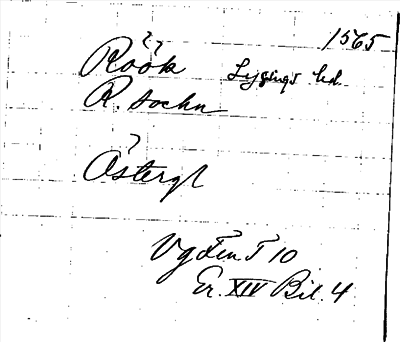 1565
Röök Lysings hd.
R. sochn
Östergl
Vg Fem T 10
Er. XIV Bil. 4